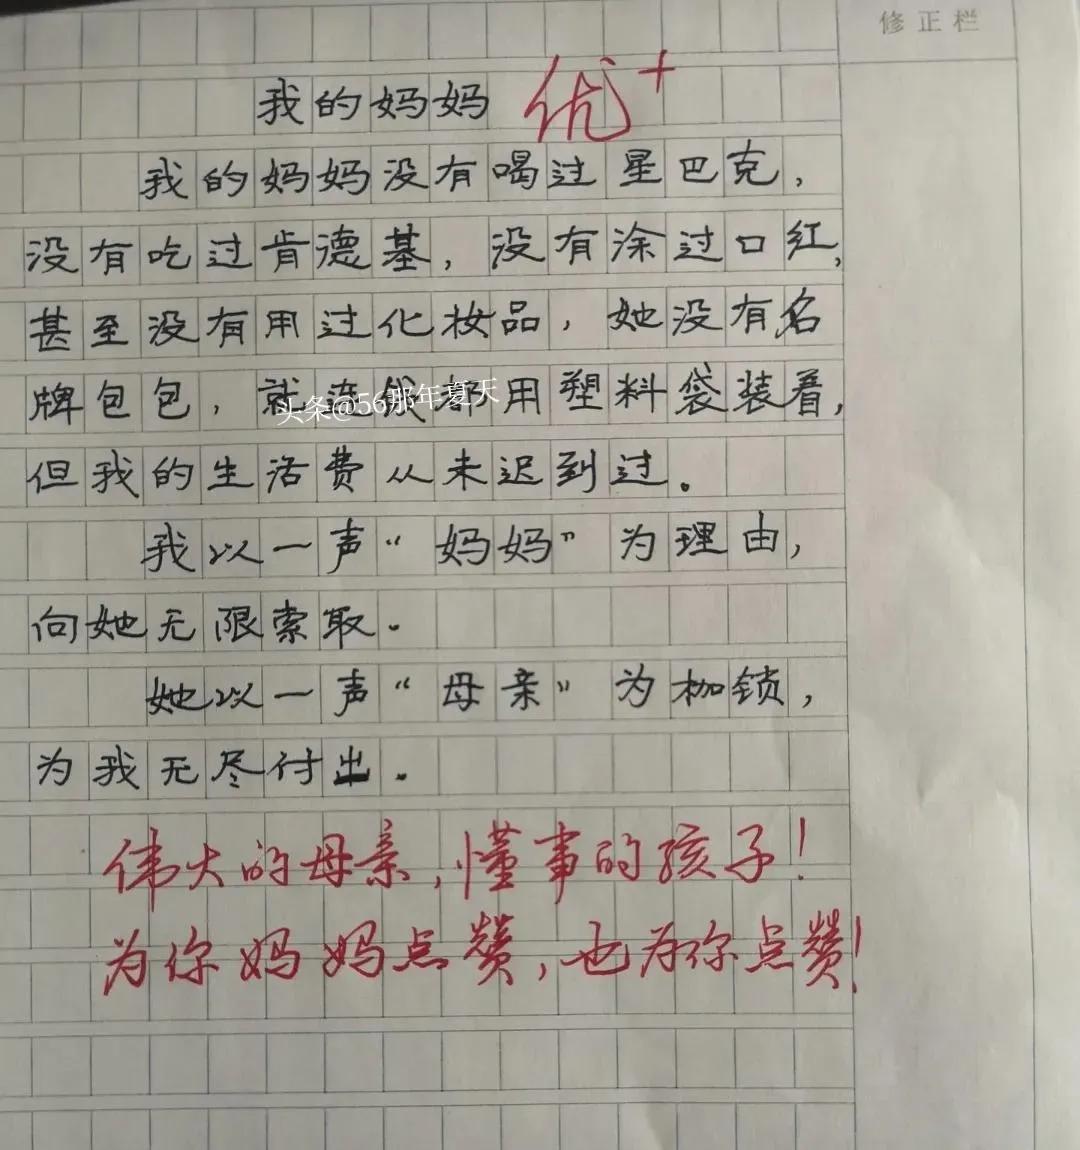 修正栏
我的妈妈 优+
我的妈妈没有喝过星巴克，
没有吃过肯德基，没有涂过口红，
甚至没有用过化妆品，她没有名
牌包包，就连钱都用塑料袋装着，
但我的生活费从未迟到过。
头条@56那年夏天
我以一声“妈妈”为理由，
向她无限索取．
她以一声“母亲”为枷锁，
为我无尽付出．
伟大的母亲，懂事的孩子！
为你妈妈点赞，也为你点赞！